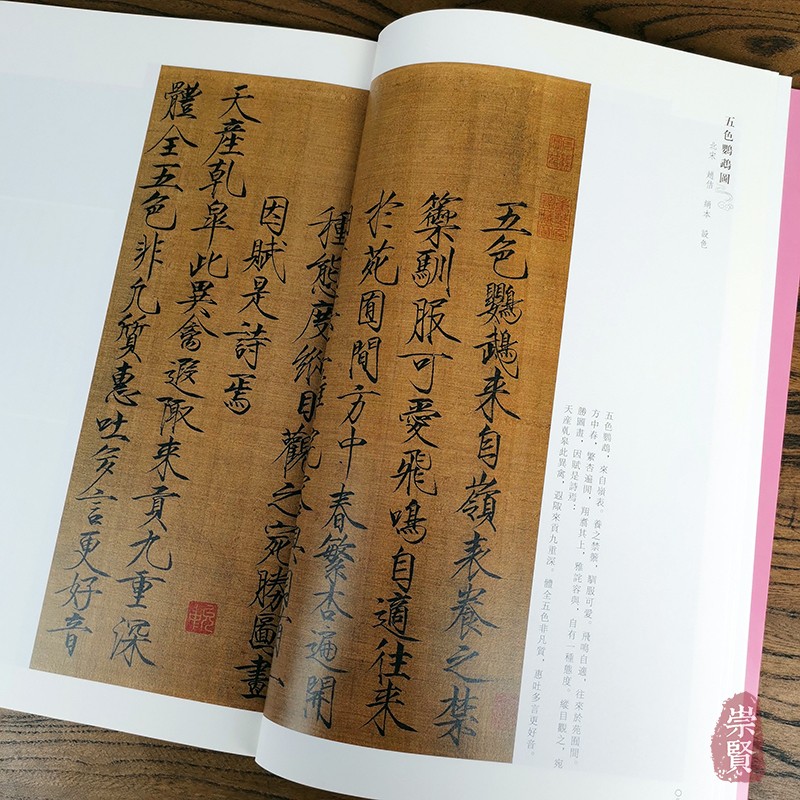 五色鸚鵡圖
北宋 趙佶 絹本 設色
五色鸚鵡，來自嶺表。養之禁籞，馴服可愛。飛鳴自適，往來於苑囿間。
方中春，繁杏遍開，翔翥其上，雅詫容與，自有一種態度。縱目觀之，宛
勝圖畫，因賦是詩焉：
天產乾皋此異禽，遐陬來貢九重深。體全五色非凡質，惠吐多言更好音。
五色鸚鵡来自嶺表養之禁
籞馴服可愛飛鳴自適往来
於苑囿間方中春繁杏遍開
種態度縱目觀之宛勝圖畫
因賦是詩焉
天產乾皋此異禽遐陬来貢九重深
體全五色非凡質惠吐多言更好音
崇賢